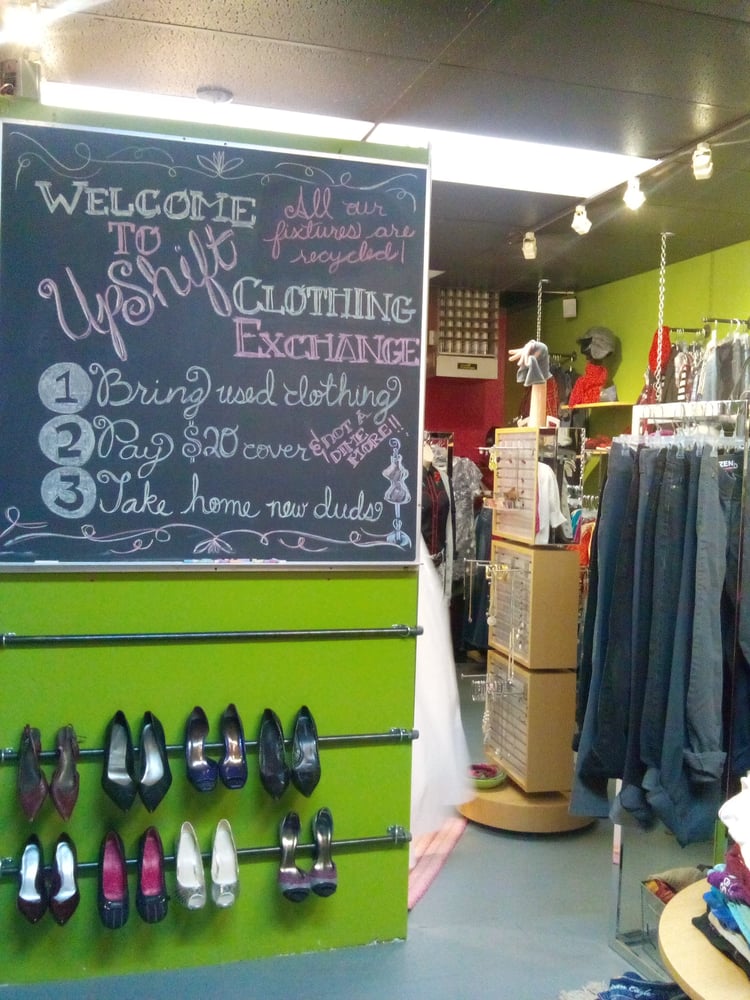 WELCOME
TO
UpShift
CLOTHING
EXCHANGE
All our
fixtures are
recycled!
1 Bring used clothing
2 Pay $20 cover
& NOT A
DIME
MORE!!
3 Take home new duds